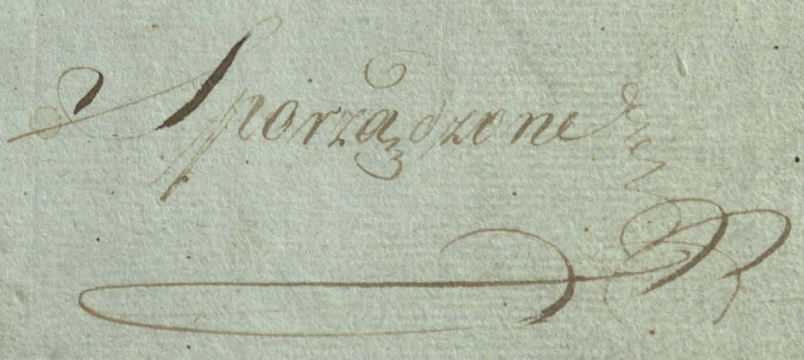 Sporządzone